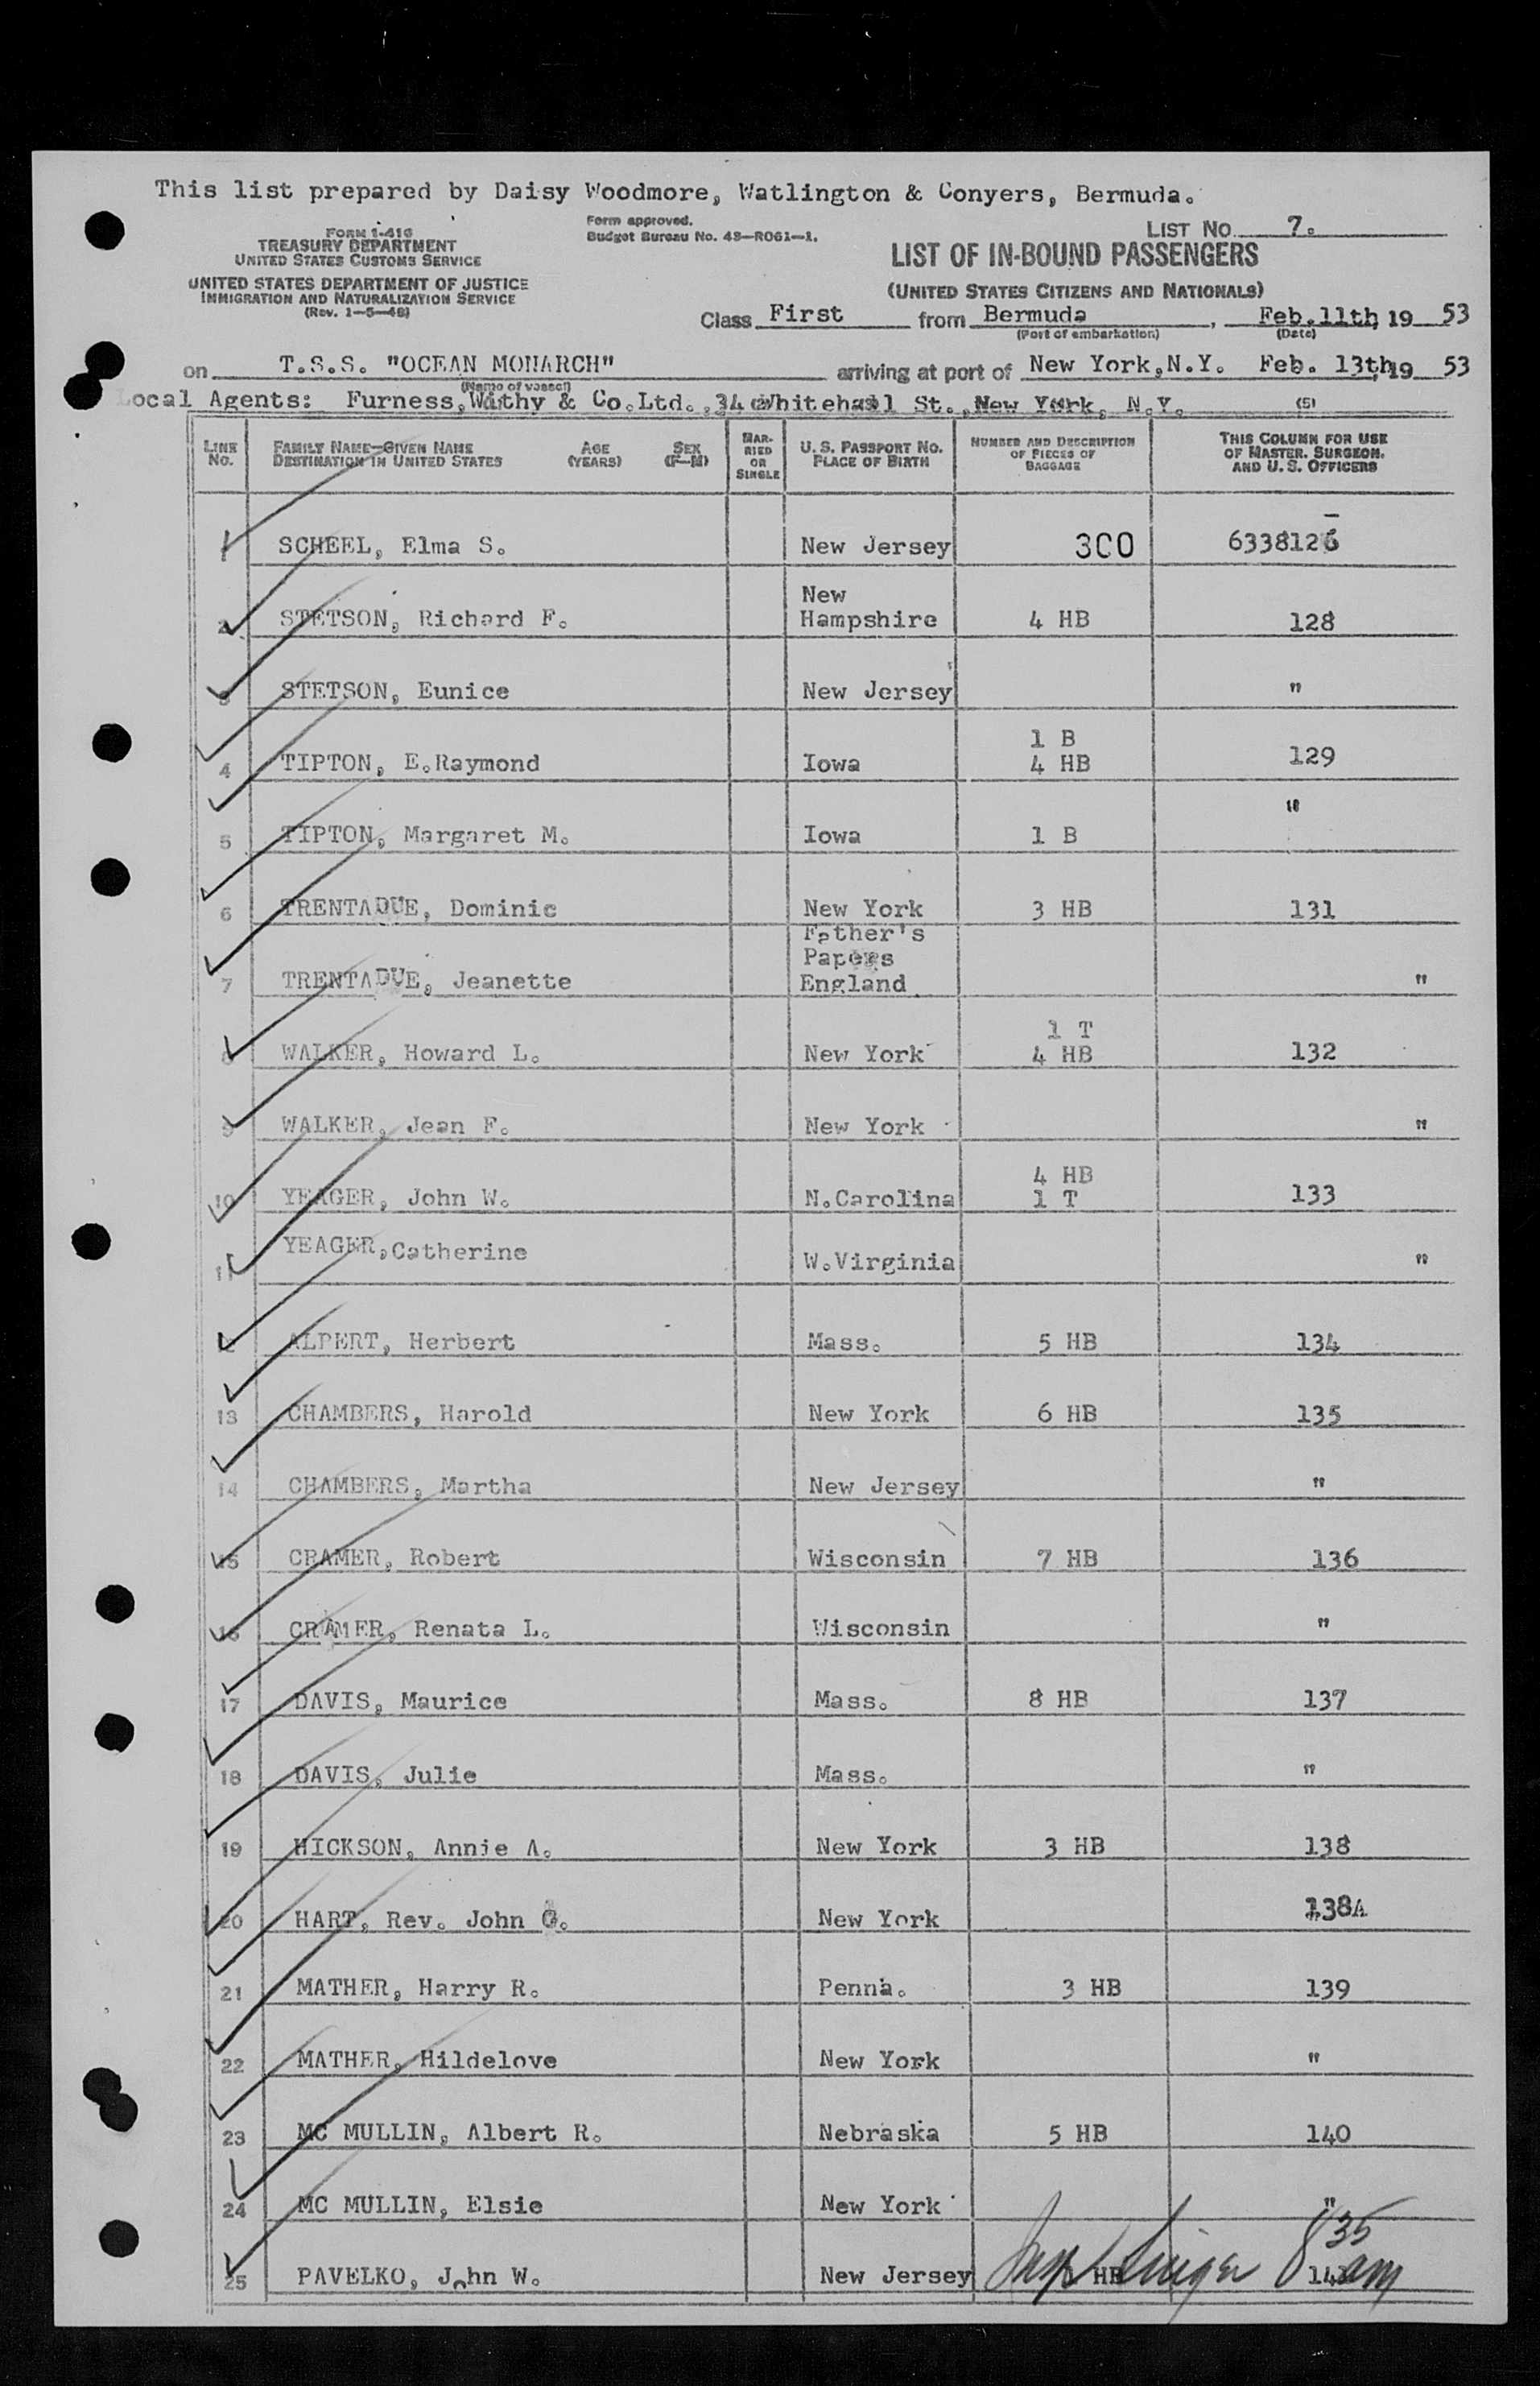 This list prepared by Daisy Woodmore, Watlington & Conyers, Bermuda.
FORM I-416
TREASURY DEPARTMENT
UNITED STATES CUSTOMS SERVICE
UNITED STATES DEPARTMENT OF JUSTICE
IMMIGRATION AND NATURALIZATION SERVICE
(Rev. 1-5-48)
Form approved.
Budget Bureau No. 43-R061-1.
LIST NO. 7.
LIST OF IN-BOUND PASSENGERS
(UNITED STATES CITIZENS AND NATIONALS)
Class First from Bermuda, Feb.11th, 19 53
(Port of embarkation) (Date)
on T.S.S. "OCEAN MONARCH" arriving at port of New York,N.Y. Feb. 13th, 19 53
(Name of vessel)
Local Agents: Furness, Withy & Co.Ltd., 34 Whitehall St., New York, N.Y. (5)
LINE No. FAMILY NAME—GIVEN NAME DESTINATION IN UNITED STATES AGE (YEARS) SEX (F-M) MARRIED OR SINGLE U. S. PASSPORT NO. PLACE OF BIRTH NUMBER AND DESCRIPTION OF PIECES OF BAGGAGE THIS COLUMN FOR USE OF MASTER, SURGEON, AND U. S. OFFICERS
1 SCHEEL, Elma S. New Jersey 300 6338126
2 STETSON, Richard F. New Hampshire 4 HB 128
3 STETSON, Eunice New Jersey "
4 TIPTON, E.Raymond Iowa 1 B 4 HB 129
5 TIPTON, Margaret M. Iowa 1 B "
6 TRENTADUE, Dominic New York 3 HB 131
7 TRENTADUE, Jeanette Father's Papers England "
8 WALKER, Howard L. New York 1 T 4 HB 132
9 WALKER, Jean F. New York "
10 YEAGER, John W. N.Carolina 4 HB 1 T 133
11 YEAGER,Catherine W.Virginia "
12 ALPERT, Herbert Mass. 5 HB 134
13 CHAMBERS, Harold New York 6 HB 135
14 CHAMBERS, Martha New Jersey "
15 CRAMER, Robert Wisconsin 7 HB 136
16 CRAMER, Renata L. Wisconsin "
17 DAVIS, Maurice Mass. 8 HB 137
18 DAVIS, Julie Mass. "
19 HICKSON, Annie A. New York 3 HB 138
20 HART, Rev. John G. New York 138A
21 MATHER, Harry R. Penna. 3 HB 139
22 MATHER, Hildelove New York "
23 MC MULLIN, Albert R. Nebraska 5 HB 140
24 MC MULLIN, Elsie New York "
25 PAVELKO, John W. New Jersey HB
8 35 am